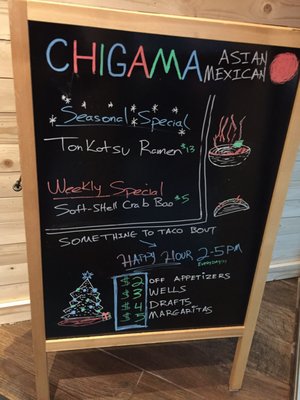 CHIGAMA ASIAN MEXICAN
Seasonal Special
TonKotsu Ramen $13
Weekly Special
Soft-Shell Crab Bao $5
SOMETHING TO TACO BOUT
HAPPY HOUR 2-5PM
EVERYDAY!!
$2 OFF APPETIZERS
$3 WELLS
$4 DRAFTS
$5 MARGARITAS